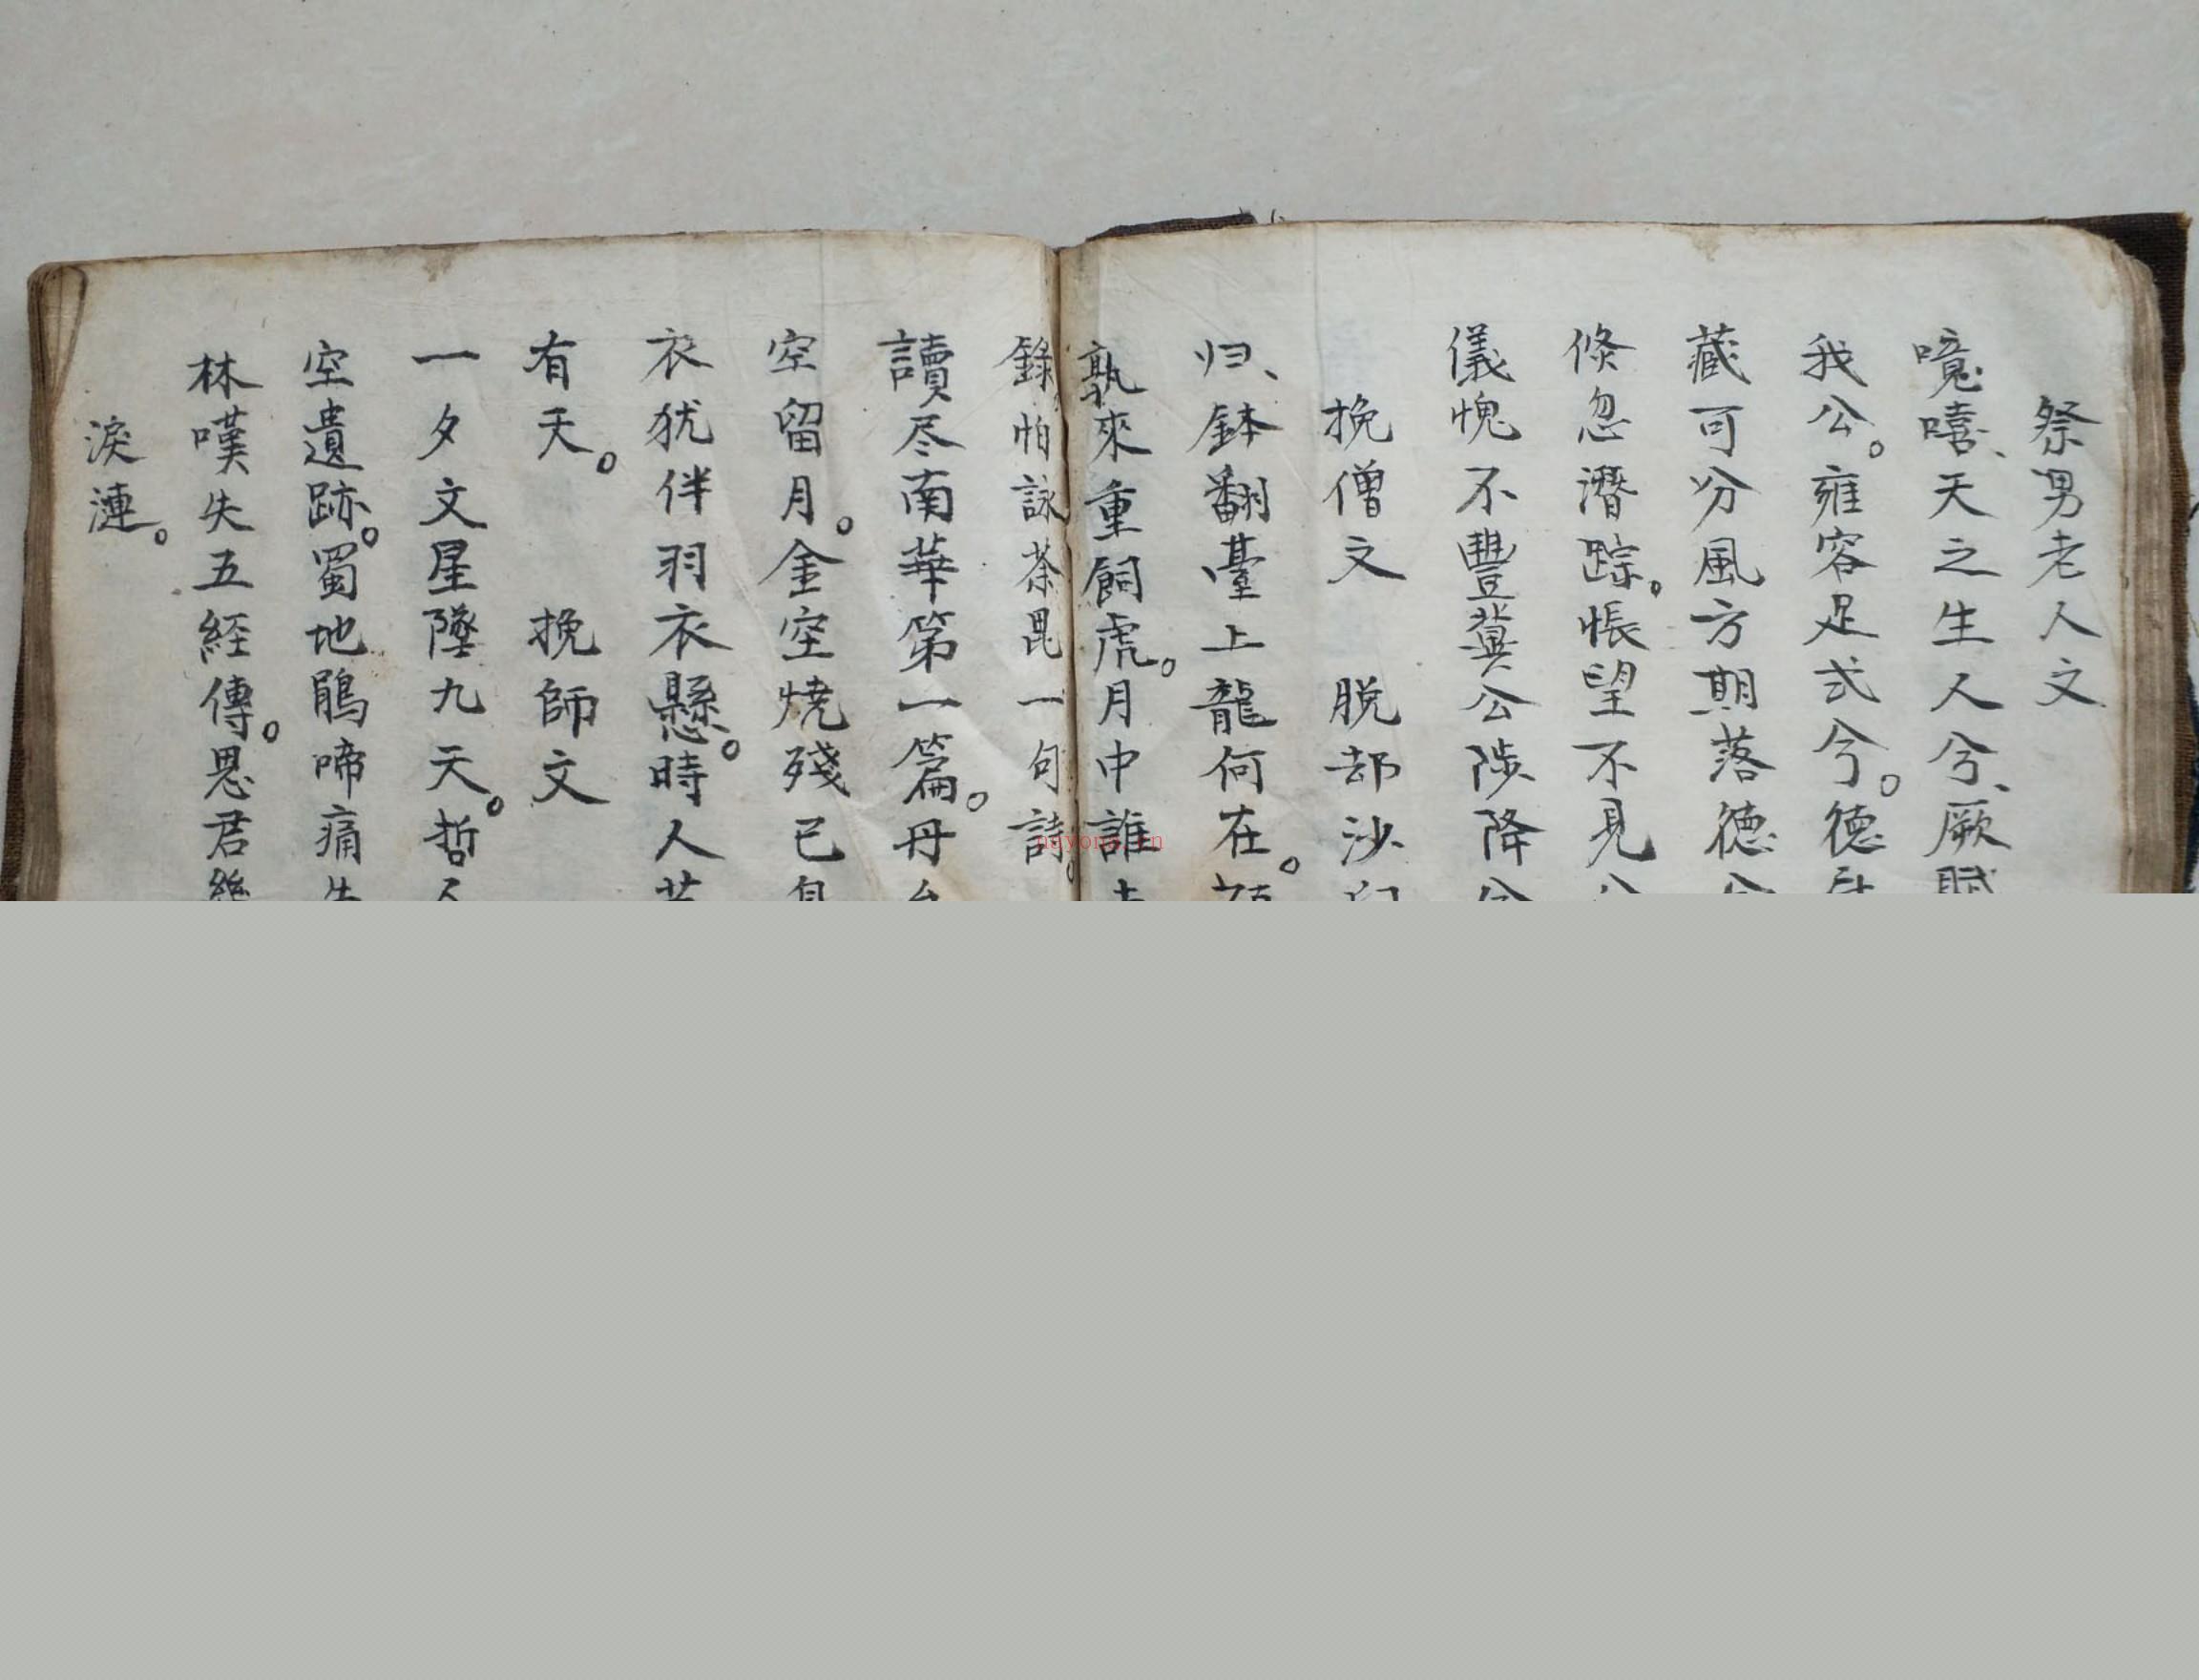 祭男老人文
噫嘻、天之生人兮、厥賦
我公。雍容足式兮。德
藏可分風方期落德
倏忽潛踪。悵望不見
儀愧不豐冀公陟降
挽僧文 脱却沙
归、鉢翻臺上龍何在。
孰來重飼虎。月中誰
錄。怕詠荼毘一句詩。
讀尽南華第一篇。丹
空留月。金空燒殘已
衣犹伴羽衣懸。時人
有天。 挽師文
一夕文星墜九天。哲
空遺跡。蜀地鵑啼痛
林嘆失五經傳。恩君
淚漣。
nayona.cn